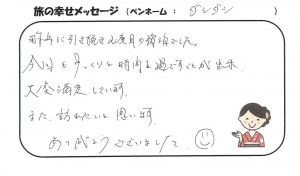 旅の幸せメッセージ（ペンネーム： ダンダン ）
昨年に引き続き2度目の宿泊でした。
今回もゆっくりと時間を過すことが出来、
大変満足しています。
また、訪れたいと思います。
ありがとうございました。